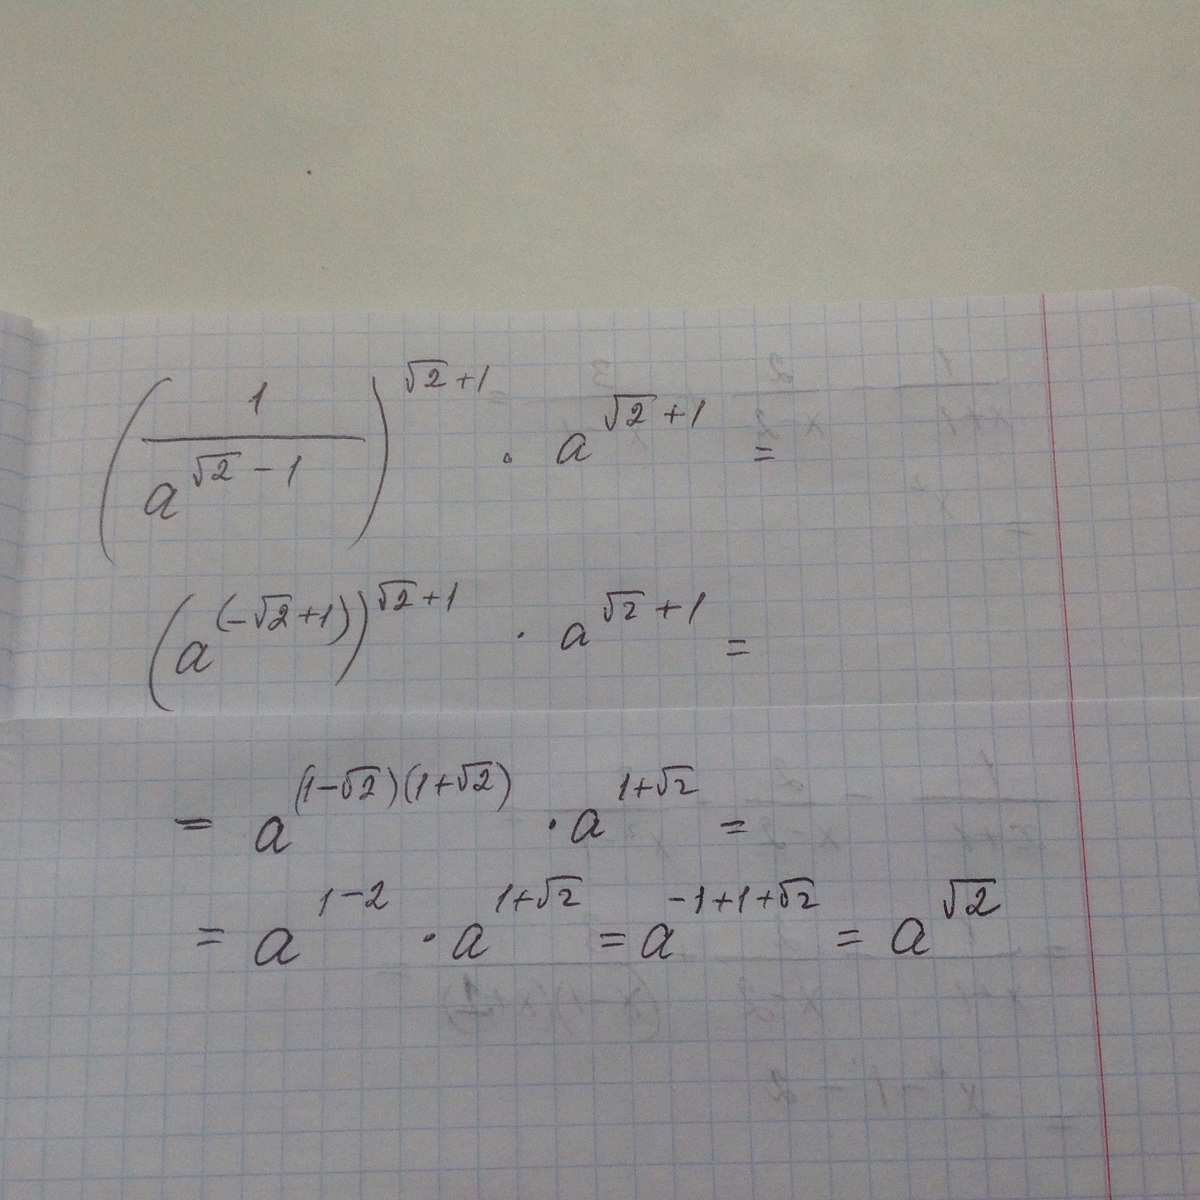 (1/a^(√2-1))^(√2+1) · a^(√2+1) =
(a^(-√2+1))^(√2+1) · a^(√2+1) =
= a^((1-√2)(1+√2)) · a^(1+√2) =
= a^(1-2) · a^(1+√2) = a^(-1+1+√2) = a^(√2)